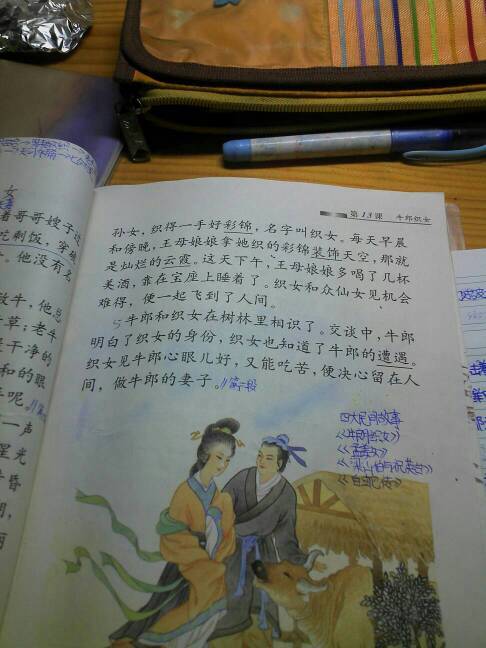 女
着哥哥嫂子过
吃剩饭，穿破
。他没有名
放牛，他总
草；老牛
干净的
和的眼
牛呢。
一声
星光
昏
第13课 牛郎织女
孙女，织得一手好彩锦，名字叫织女。每天早晨
和傍晚，王母娘娘拿她织的彩锦装饰天空，那就
是灿烂的云霞。这天下午，王母娘娘多喝了几杯
美酒，靠在宝座上睡着了。织女和众仙女见机会
难得，便一起飞到了人间。
5 牛郎和织女在树林里相识了。交谈中，牛郎
明白了织女的身份，织女也知道了牛郎的遭遇。
织女见牛郎心眼儿好，又能吃苦，便决心留在人
间，做牛郎的妻子。//第一段
四大民间故事
《牛郎织女》
《孟姜女》
《梁山伯与祝英台》
《白蛇传》